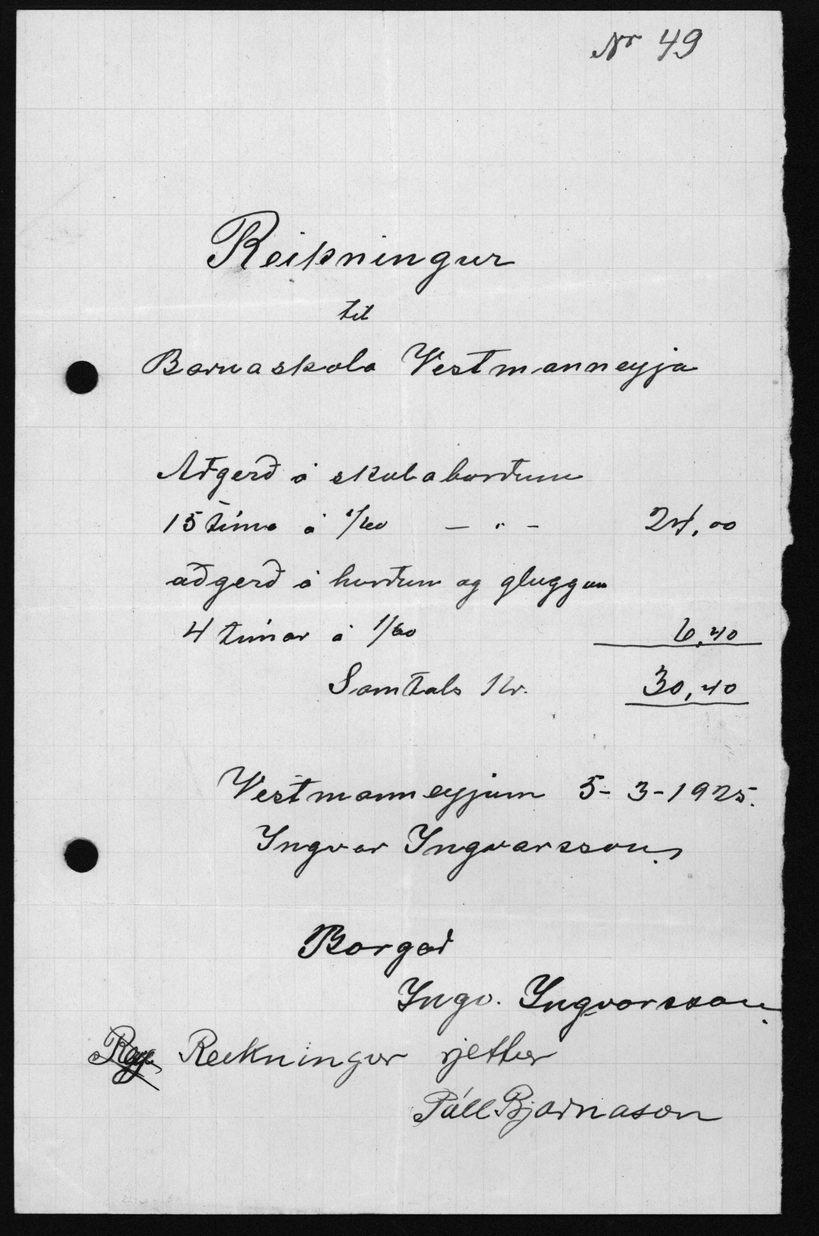 Nr 49
Reikningur
til
Barnaskola Vestmanneyja
Aðgerð á skolaborðum
15 tíma á 1/60 — " — 24,00
aðgerð á hurðum og gluggum
4 tímar á 1/60 6,40
Samtals Kr. 30,40
Vestmanneyjum 5-3-1925.
Ingvar Ingvarsson
Borgað
Ingv. Ingvarsson.
Reikningur rjettur
Páll Bjarnason